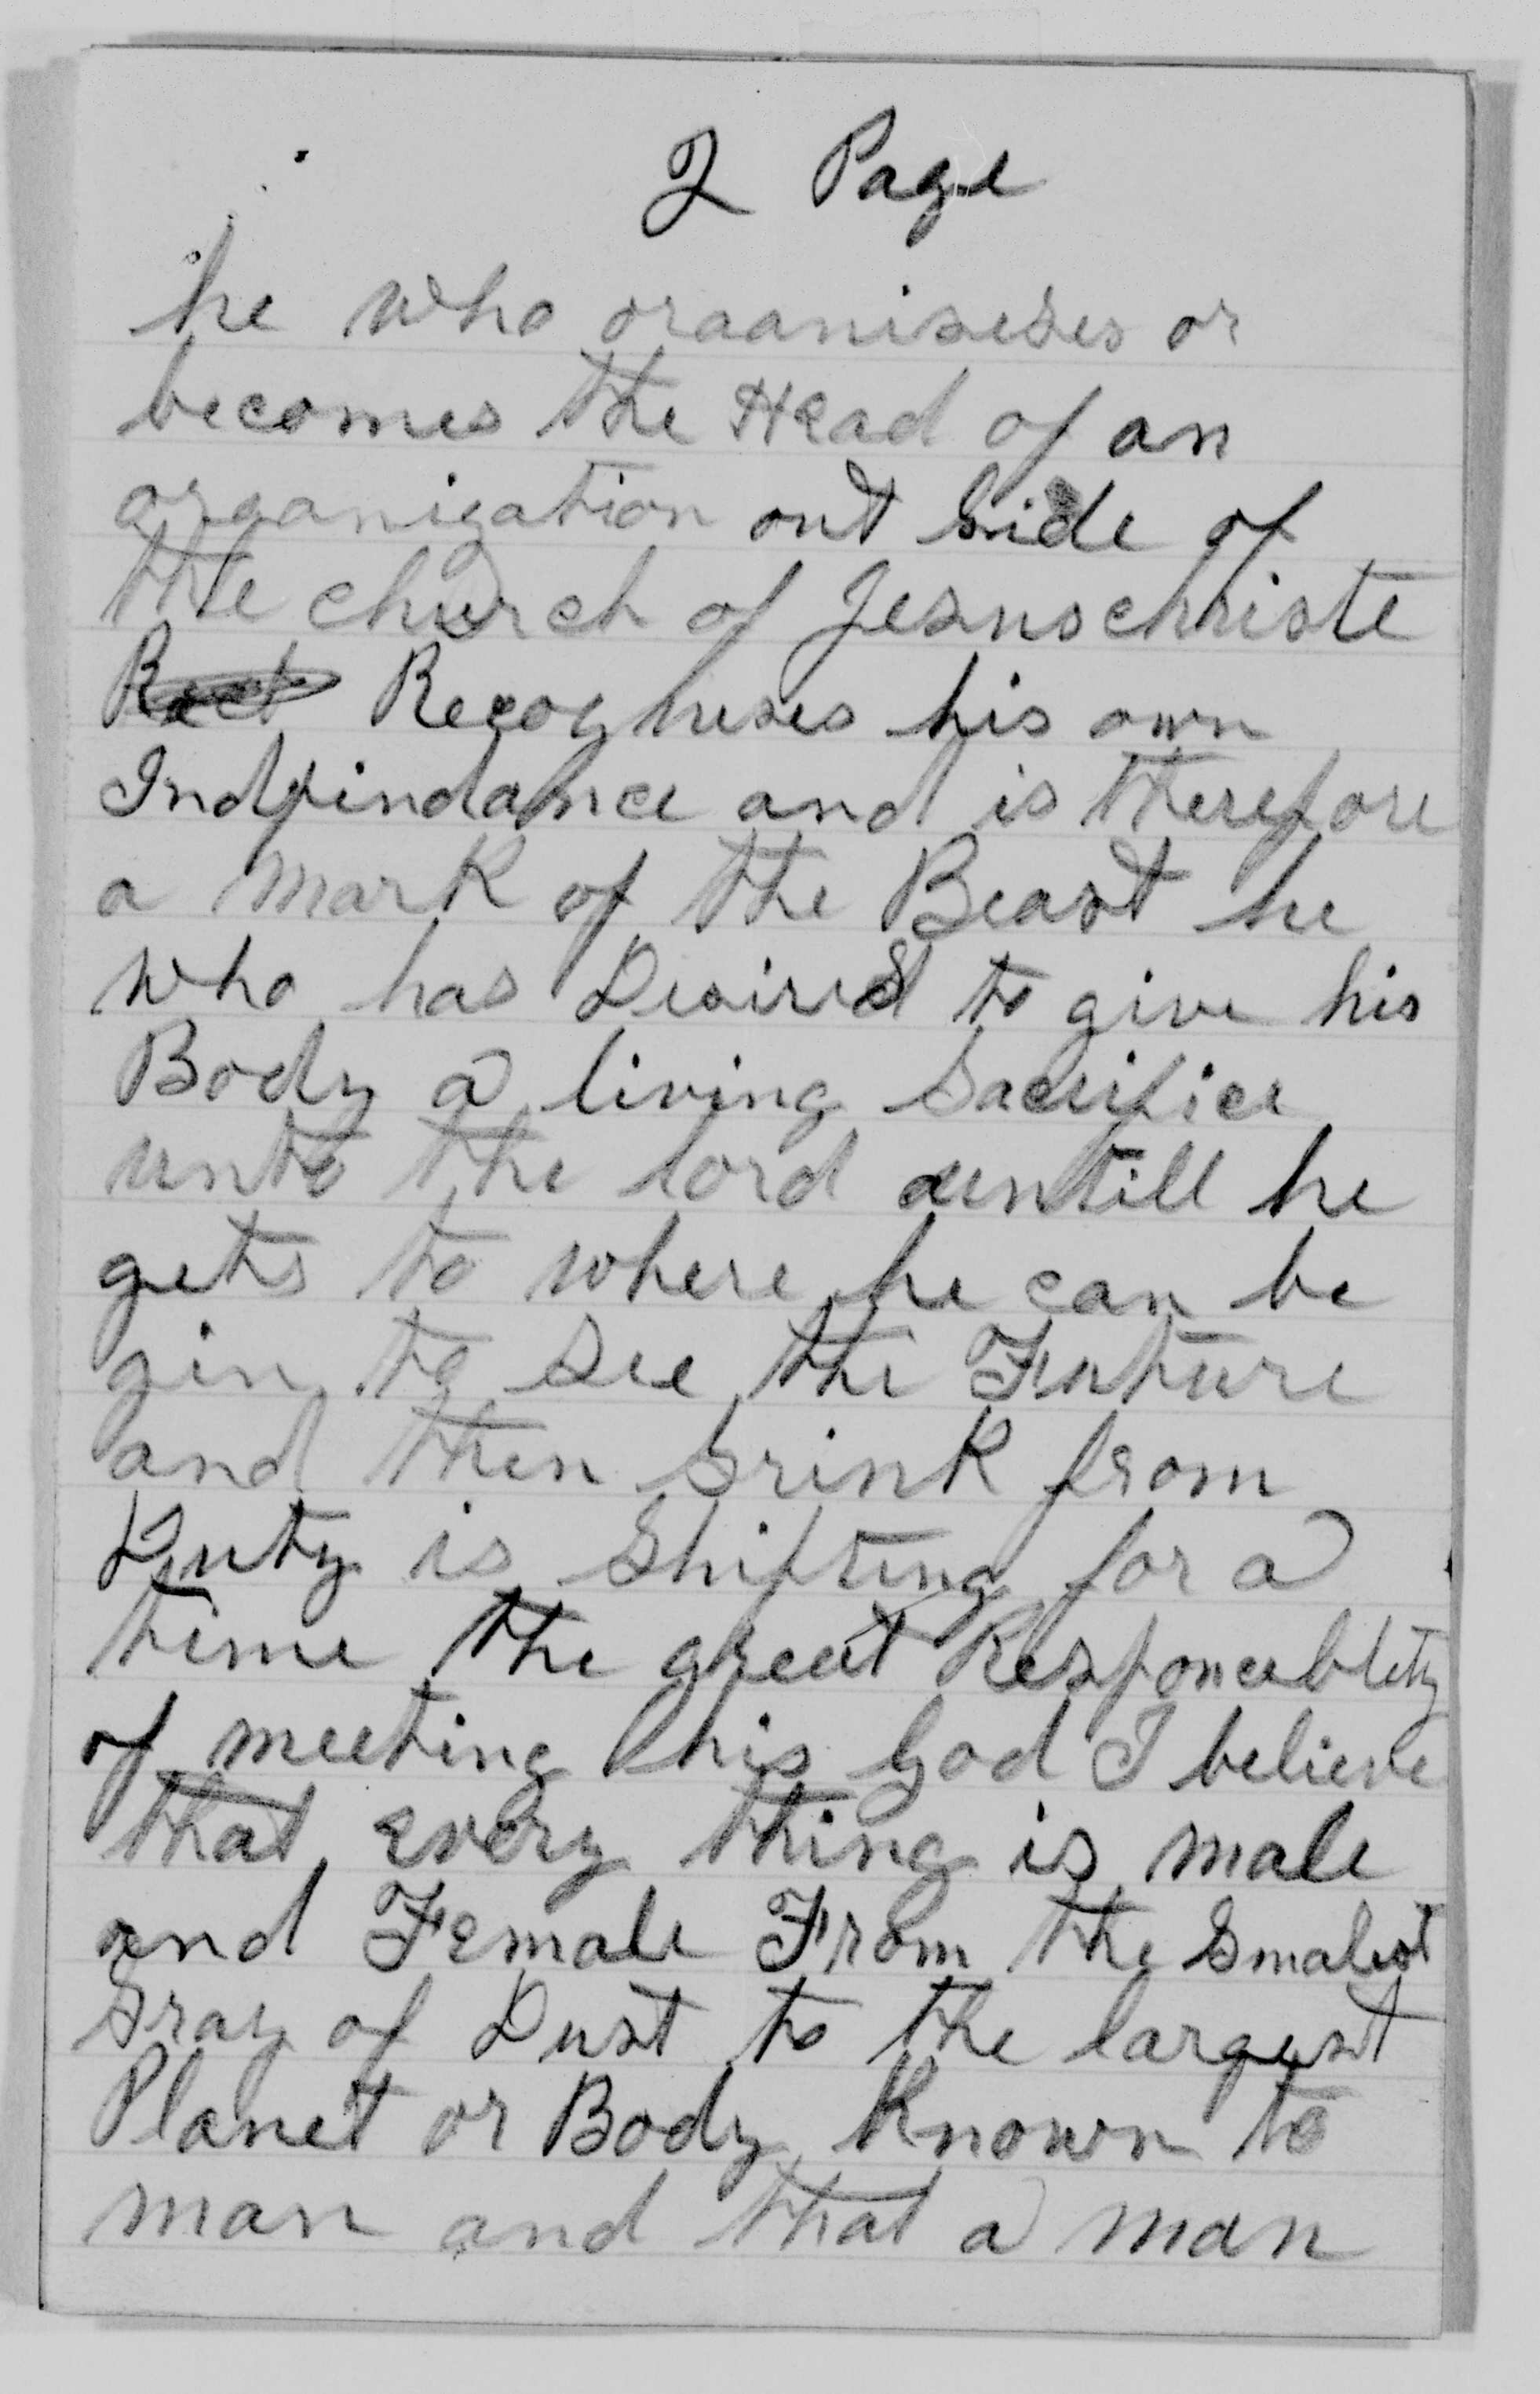 2 Page
he who oraaniseses or
becomes the Head of an
organization out side of
the church of Jesus christe
Recognises his own
Indpindance and is therefore
a mark of the Beast he
who has Desired to give his
Body a living sacrifice
unto the lord untill he
gets to where he can be
gin to see the Future
and then srink from
Duty is shifting for a
time the great Responcablity
of meeting his God I believe
that every thing is male
and Female From the smalest
sray of Dust to the largest
Planet or Body Known to
man and that a man